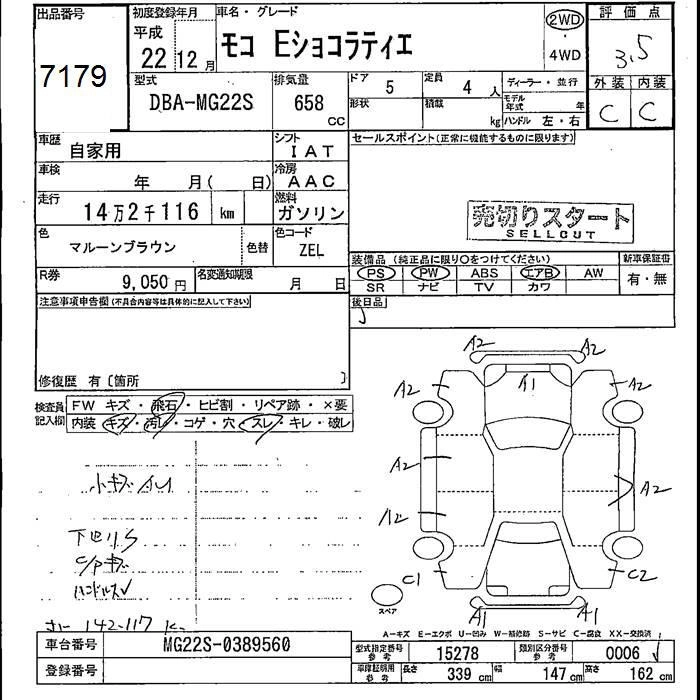 出品番号
7179
初度登録年月
平成
22 12 月
車名・グレード
モコ Eショコラティエ
2WD
・
4WD
評価点
3.5
外装 内装
C C
型式
DBA-MG22S
排気量
658
CC
ドア 5
定員 4 人
ディーラー・並行
形状
積載 kg
モデル年式 年
ハンドル 左・右
車歴
自家用
シフト
IAT
車検
年 月( 日)
冷房
AAC
走行
14万2千116 km
燃料
ガソリン
色
マルーンブラウン
色替
色コード
ZEL
R券
9,050 円
名変通知期限
月 日
セールスポイント(正常に機能するものに限ります)
売切りスタート
SELLOUT
装備品 (純正品に限り○をつけてください)
新車保証書
PS PW ABS エアB AW
有・無
SR ナビ TV カワ
後日品
注意事項申告欄(不具合内容等は具体的に記入して下さい)
修復歴 有〔箇所 〕
検査員記入欄
FW キズ・飛石・ヒビ割・リペア跡・×要
内装 キズ・汚レ・コゲ・穴・スレ・キレ・破レ
小キズ
下回りS
C/Pキズ
142-117 K
A2 A2
A1
A2 A2
A2
A2
A2
C1
C2
スペア
A1 A1
A-キズ E-エクボ U-凹み W-補修跡 S-サビ C-腐食 XX-交換済
車台番号
MG22S-0389560
登録番号
型式指定番号
参考
15278
類別区分番号
参考
0006
車庫証明用
参考
長さ 339 cm
幅 147 cm
高さ 162 cm